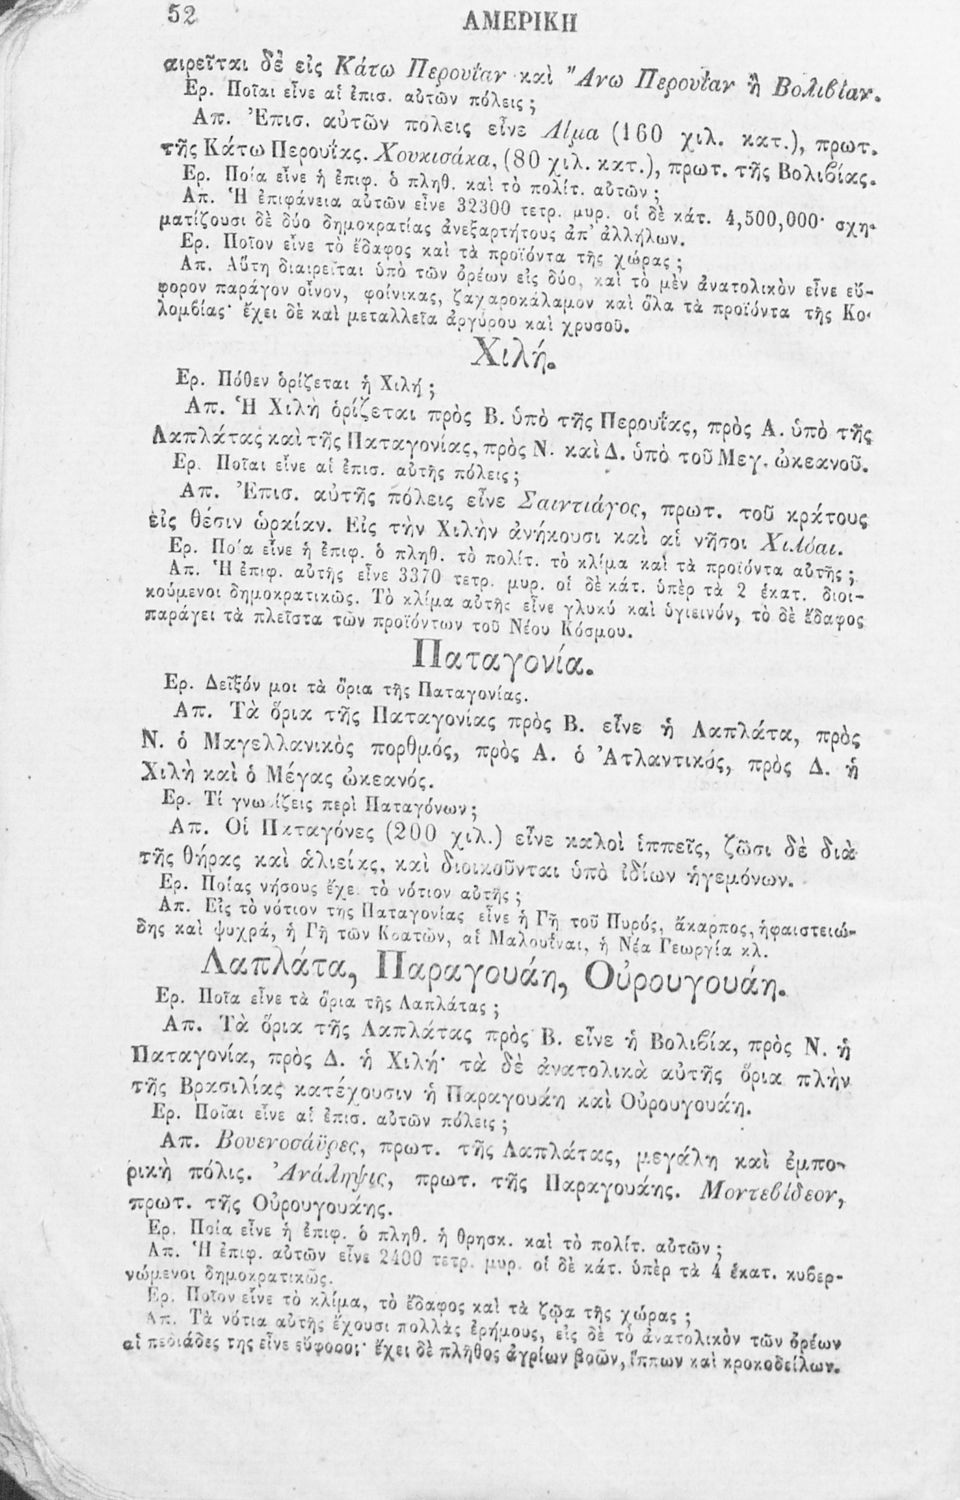 52
ΑΜΕΡΙΚΗ
αιρεῖται δὲ εἰς Κάτω Περουΐαν καὶ Ἄνω Περουΐαν ἢ Βολιβίαν.
Ερ. Ποῖαι εἶνε αἱ ἐπισ. αὐτῶν πόλεις;
Απ. Ἐπισ. αὐτῶν πόλεις εἶνε Λίμα (160 χιλ. κατ.), πρωτ.
τῆς Κάτω Περουΐας. Χουκισάκα, (80 χιλ. κατ.), πρωτ. τῆς Βολιβίας.
Ερ. Ποία εἶνε ἡ ἐπιφ. ὁ πληθ. καὶ τὸ πολίτ. αὐτῶν;
Απ. Ἡ ἐπιφάνεια αὐτῶν εἶνε 32300 τετρ. μυρ. οἱ δὲ κάτ. 4,500,000· σχη-
ματίζουσι δὲ δύο δημοκρατίας ἀνεξαρτήτους ἀπ' ἀλλήλων.
Ερ. Ποῖον εἶνε τὸ ἔδαφος καὶ τὰ προϊόντα τῆς χώρας;
Απ. Αὕτη διαιρεῖται ὑπὸ τῶν ὀρέων εἰς δύο, καὶ τὸ μὲν ἀνατολικὸν εἶνε εὔ-
φορον παράγον οἶνον, φοίνικας, ζαχαροκάλαμον καὶ ὅλα τὰ προϊόντα τῆς Κο-
λομβίας· ἔχει δὲ καὶ μεταλλεῖα ἀργύρου καὶ χρυσοῦ.
Χιλή.
Ερ. Πόθεν ὁρίζεται ἡ Χιλή;
Απ. Ἡ Χιλὴ ὁρίζεται πρὸς Β. ὑπὸ τῆς Περουΐας, πρὸς Α. ὑπὸ τῆς
Λαπλάτας καὶ τῆς Παταγονίας, πρὸς Ν. καὶ Δ. ὑπὸ τοῦ Μεγ. ὠκεανοῦ.
Ερ. Ποῖαι εἶνε αἱ ἐπισ. αὐτῆς πόλεις;
Απ. Ἐπισ. αὐτῆς πόλεις εἶνε Σαιντιάγος, πρωτ. τοῦ κράτους
εἰς θέσιν ὡραίαν. Εἰς τὴν Χιλὴν ἀνήκουσι καὶ αἱ νῆσοι Χιλόαι.
Ερ. Ποία εἶνε ἡ ἐπιφ. ὁ πληθ. τὸ πολίτ. τὸ κλίμα καὶ τὰ προϊόντα αὐτῆς;
Απ. Ἡ ἐπιφ. αὐτῆς εἶνε 3370 τετρ. μυρ. οἱ δὲ κάτ. ὑπὲρ τὰ 2 ἑκατ. διοι-
κούμενοι δημοκρατικῶς. Τὸ κλίμα αὐτῆς εἶνε γλυκὺ καὶ ὑγιεινόν, τὸ δὲ ἔδαφος
παράγει τὰ πλεῖστα τῶν προϊόντων τοῦ Νέου Κόσμου.
Παταγονία.
Ερ. Δεῖξόν μοι τὰ ὅρια τῆς Παταγονίας.
Απ. Τὰ ὅρια τῆς Παταγονίας πρὸς Β. εἶνε ἡ Λαπλάτα, πρὸς
Ν. ὁ Μαγελλανικὸς πορθμός, πρὸς Α. ὁ Ἀτλαντικός, πρὸς Δ. ἡ
Χιλὴ καὶ ὁ Μέγας ὠκεανός.
Ερ. Τί γνωρίζεις περὶ Παταγόνων;
Απ. Οἱ Παταγόνες (200 χιλ.) εἶνε καλοὶ ἱππεῖς, ζῶσι δὲ διὰ
τῆς θήρας καὶ ἁλιείας, καὶ διοικοῦνται ὑπὸ ἰδίων ἡγεμόνων.
Ερ. Ποίας νήσους ἔχει τὸ νότιον αὐτῆς;
Απ. Εἰς τὸ νότιον τῆς Παταγονίας εἶνε ἡ Γῆ τοῦ Πυρός, ἄκαρπος, ἡφαιστειώ-
δης καὶ ψυχρά, ἡ Γῆ τῶν Κρατῶν, αἱ Μαλουῖναι, ἡ Νέα Γεωργία κλ.
Λαπλάτα, Παραγουάη, Οὐρουγουάη.
Ερ. Ποῖα εἶνε τὰ ὅρια τῆς Λαπλάτας;
Απ. Τὰ ὅρια τῆς Λαπλάτας πρὸς Β. εἶνε ἡ Βολιβία, πρὸς Ν. ἡ
Παταγονία, πρὸς Δ. ἡ Χιλή· τὰ δὲ ἀνατολικὰ αὐτῆς ὅρια πλὴν
τῆς Βρασιλίας κατέχουσιν ἡ Παραγουάη καὶ Οὐρουγουάη.
Ερ. Ποῖαι εἶνε αἱ ἐπισ. αὐτῶν πόλεις;
Απ. Βουενοσάϋρες, πρωτ. τῆς Λαπλάτας, μεγάλη καὶ ἐμπο-
ρικὴ πόλις. Ἀνάληψις, πρωτ. τῆς Παραγουάης. Μοντεβίδεον,
πρωτ. τῆς Οὐρουγουάης.
Ερ. Ποία εἶνε ἡ ἐπιφ. ὁ πληθ. ἡ θρησκ. καὶ τὸ πολίτ. αὐτῶν;
Απ. Ἡ ἐπιφ. αὐτῶν εἶνε 2400 τετρ. μυρ. οἱ δὲ κάτ. ὑπὲρ τὰ 4 ἑκατ. κυβερ-
νώμενοι δημοκρατικῶς.
Ερ. Ποῖον εἶνε τὸ κλίμα, τὸ ἔδαφος καὶ τὰ ζῷα τῆς χώρας;
Απ. Τὰ νότια αὐτῆς ἔχουσι πολλὰς ἐρήμους, εἰς δὲ τὸ ἀνατολικὸν τῶν ὀρέων
αἱ πεδιάδες της εἶνε εὔφοροι· ἔχει δὲ πλῆθος ἀγρίων βοῶν, ἵππων καὶ κροκοδείλων.